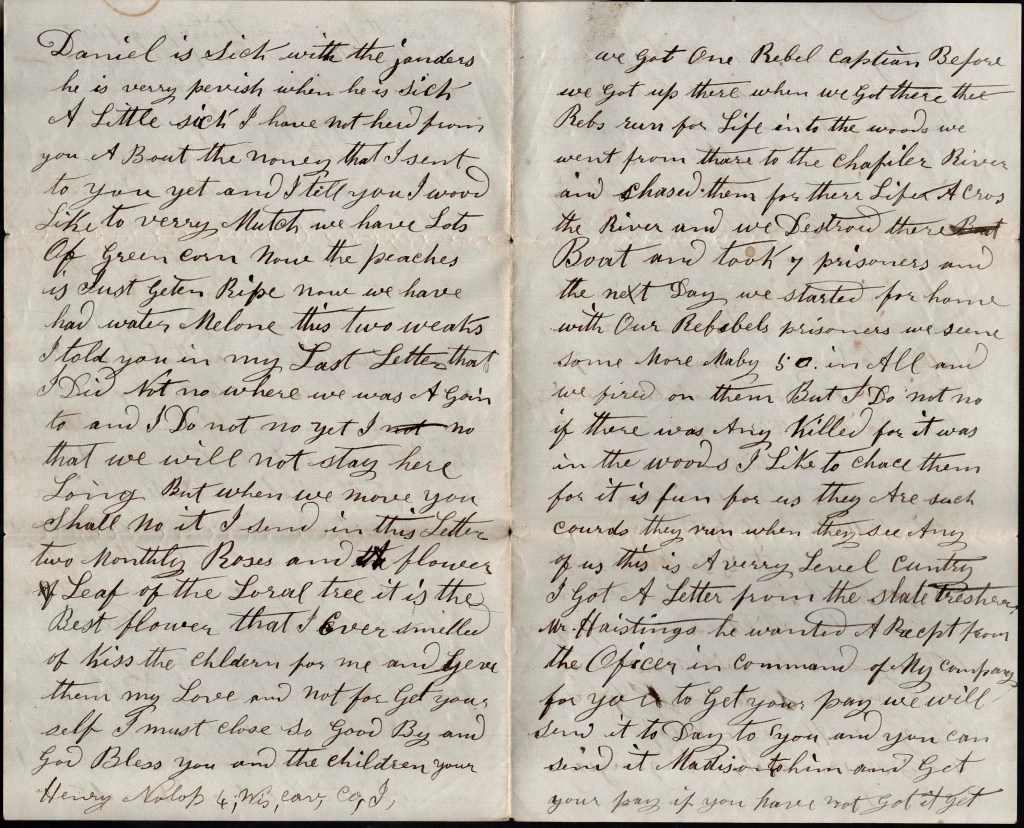 Daniel is Sick with the janders
he is verry pevish when he is Sick
A Little sick I have not herd from
you A Bout the noney that I sent
to you yet and I tell you I wood
Like to verry Mutch we have Lots
Of Green corn Now the peaches
is Just Geten Ripe now we have
had water Melone this two weaks
I told you in my Last Letter that
I Did Not no where we was A Goin
to and I Do not no yet I not no
that we will not stay here
Long But when we move you
Shall No it I send in this Letter
two Monthly Roses and A flower
Leaf of the Loral tree it is the
Best flower that I Ever smelled
of Kiss the Children for me and Geve
them my Love and not for Get your
self I must close so Good By and
God Bless you and the children your
Henry 4, Wis, cav, Co, I,
we Got One Rebel Captian Before
we Got up there when we Got there the
Rebs run for Life into the woods we
went from thare to the River
and Chased them for there Life Acros
the River and we Destroed there Boat
Boat and took 7 prisoners and
the next Day we started for home
with Our Rebebels prisoners we seene
some More Maby 50. in All and
we fired on them But I Do not no
if there was Any Killed for it was
in the woods I Like to chace them
for it is fun for us they Are such
courds they run when they see Any
of us this is A verry Level Cuntry
I Got A Letter from the state
Mr. Haistings he wanted A Recept from
the Oficer in command of My company
for you to Get your pay we will
send it to Day to you and you can
send it Madison to him and Get
your pay if you have not Got it Get